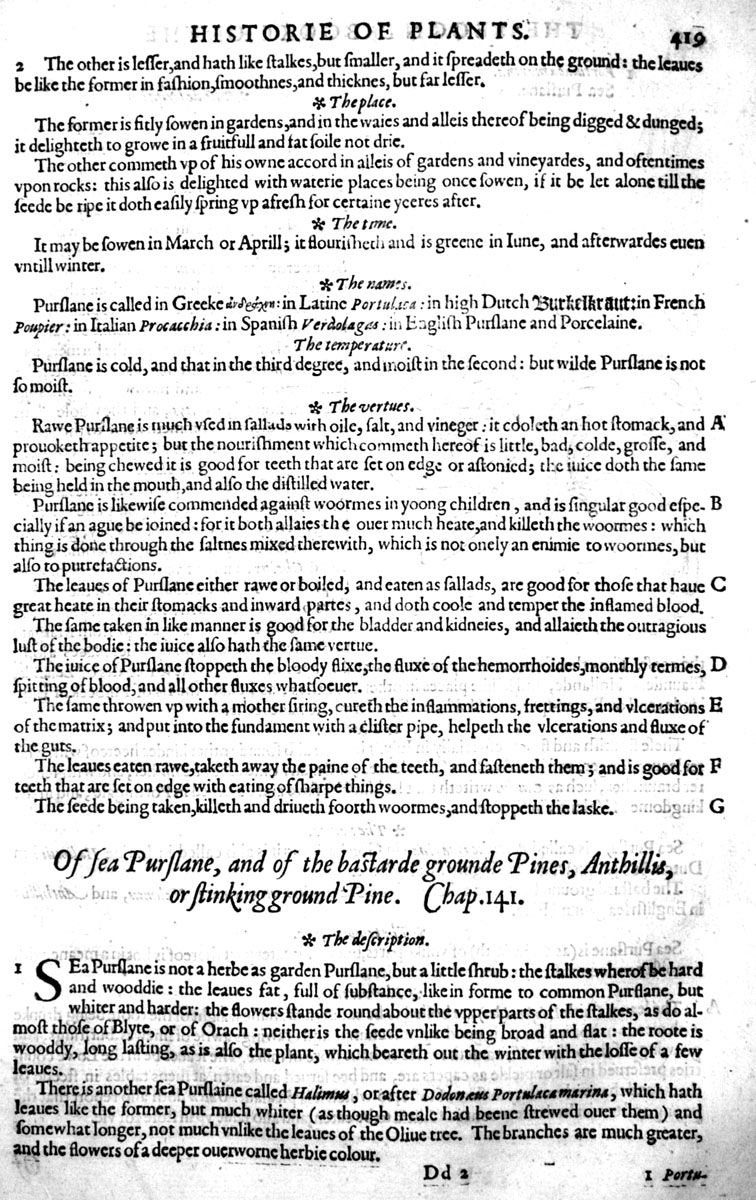 HISTORIE OF PLANTS. 419
2 The other is leſſer,and hath like ſtalkes,but ſmaller, and it ſpreadeth on the ground: the leaues
be like the former in faſhion,ſmoothnes,and thicknes, but far leſſer.
✻ The place.
The former is fitly ſowen in gardens,and in the waies and alleis thereof being digged & dunged;
it delighteth to growe in a fruitfull and fat ſoile not drie.
The other commeth vp of his owne accord in alleis of gardens and vineyardes, and oftentimes
vpon rocks: this alſo is delighted with waterie places being once ſowen, if it be let alone till the
ſeede be ripe it doth eaſily ſpring vp afreſh for certaine yeeres after.
✻ The time.
It may be ſowen in March or Aprill; it flouriſheth and is greene in Iune, and afterwardes euen
vntill winter.
✻ The names.
Purſlane is called in Greeke : in Latine Portulaca: in high Dutch Burkelkraut: in French
Poupier: in Italian Procacchia: in Spaniſh Verdolagas: in Engliſh Purſlane and Porcelaine.
The temperature.
Purſlane is cold, and that in the third degree, and moiſt in the ſecond: but wilde Purſlane is not
ſo moiſt.
✻ The vertues.
Rawe Purſlane is much vſed in ſallads with oile, ſalt, and vineger: it cooleth an hot ſtomack, and A
prouoketh appetite; but the nouriſhment which commeth hereof is little, bad, colde, groſſe, and
moiſt: being chewed it is good for teeth that are ſet on edge or aſtonied; the iuice doth the ſame
being held in the mouth,and alſo the diſtilled water.
Purſlane is likewiſe commended againſt woormes in yoong children, and is ſingular good eſpe- B
cially if an ague be ioined: for it both allaies the ouer much heate,and killeth the woormes: which
thing is done through the ſaltnes mixed therewith, which is not onely an enimie to woormes, but
alſo to putrefactions.
The leaues of Purſlane either rawe or boiled, and eaten as ſallads, are good for thoſe that haue C
great heate in their ſtomacks and inward partes, and doth coole and temper the inflamed blood.
The ſame taken in like manner is good for the bladder and kidneies, and allaieth the outragious
luſt of the bodie: the iuice alſo hath the ſame vertue.
The iuice of Purſlane ſtoppeth the bloody flixe,the fluxe of the hemorrhoides,monthly termes, D
ſpitting of blood, and all other fluxes whatſoeuer.
The ſame throwen vp with a mother ſiring, cureth the inflammations, frettings, and vlcerations E
of the matrix; and put into the fundament with a cliſter pipe, helpeth the vlcerations and fluxe of
the guts.
The leaues eaten rawe,taketh away the paine of the teeth, and faſteneth them; and is good for F
teeth that are ſet on edge with eating of ſharpe things.
The ſeede being taken,killeth and driueth foorth woormes,and ſtoppeth the laske. G
Of ſea Purſlane, and of the baſtarde grounde Pines, Anthillis,
or ſtinking ground Pine. Chap.141.
✻ The deſcription.
1 SEa Purſlane is not a herbe as garden Purſlane, but a little ſhrub: the ſtalkes wherof be hard
and wooddie: the leaues fat, full of ſubſtance, like in forme to common Purſlane, but
whiter and harder: the flowers ſtande round about the vpper parts of the ſtalkes, as do al-
moſt thoſe of Blyte, or of Orach: neither is the ſeede vnlike being broad and flat: the roote is
wooddy, long laſting, as is alſo the plant, which beareth out the winter with the loſſe of a few
leaues.
There is another ſea Purſlaine called Halimus, or after Dodonæus Portulaca marina, which hath
leaues like the former, but much whiter (as though meale had beene ſtrewed ouer them) and
ſomewhat longer, not much vnlike the leaues of the Oliue tree. The branches are much greater,
and the flowers of a deeper ouerworne herbie colour.
Dd 2 1 Portu-